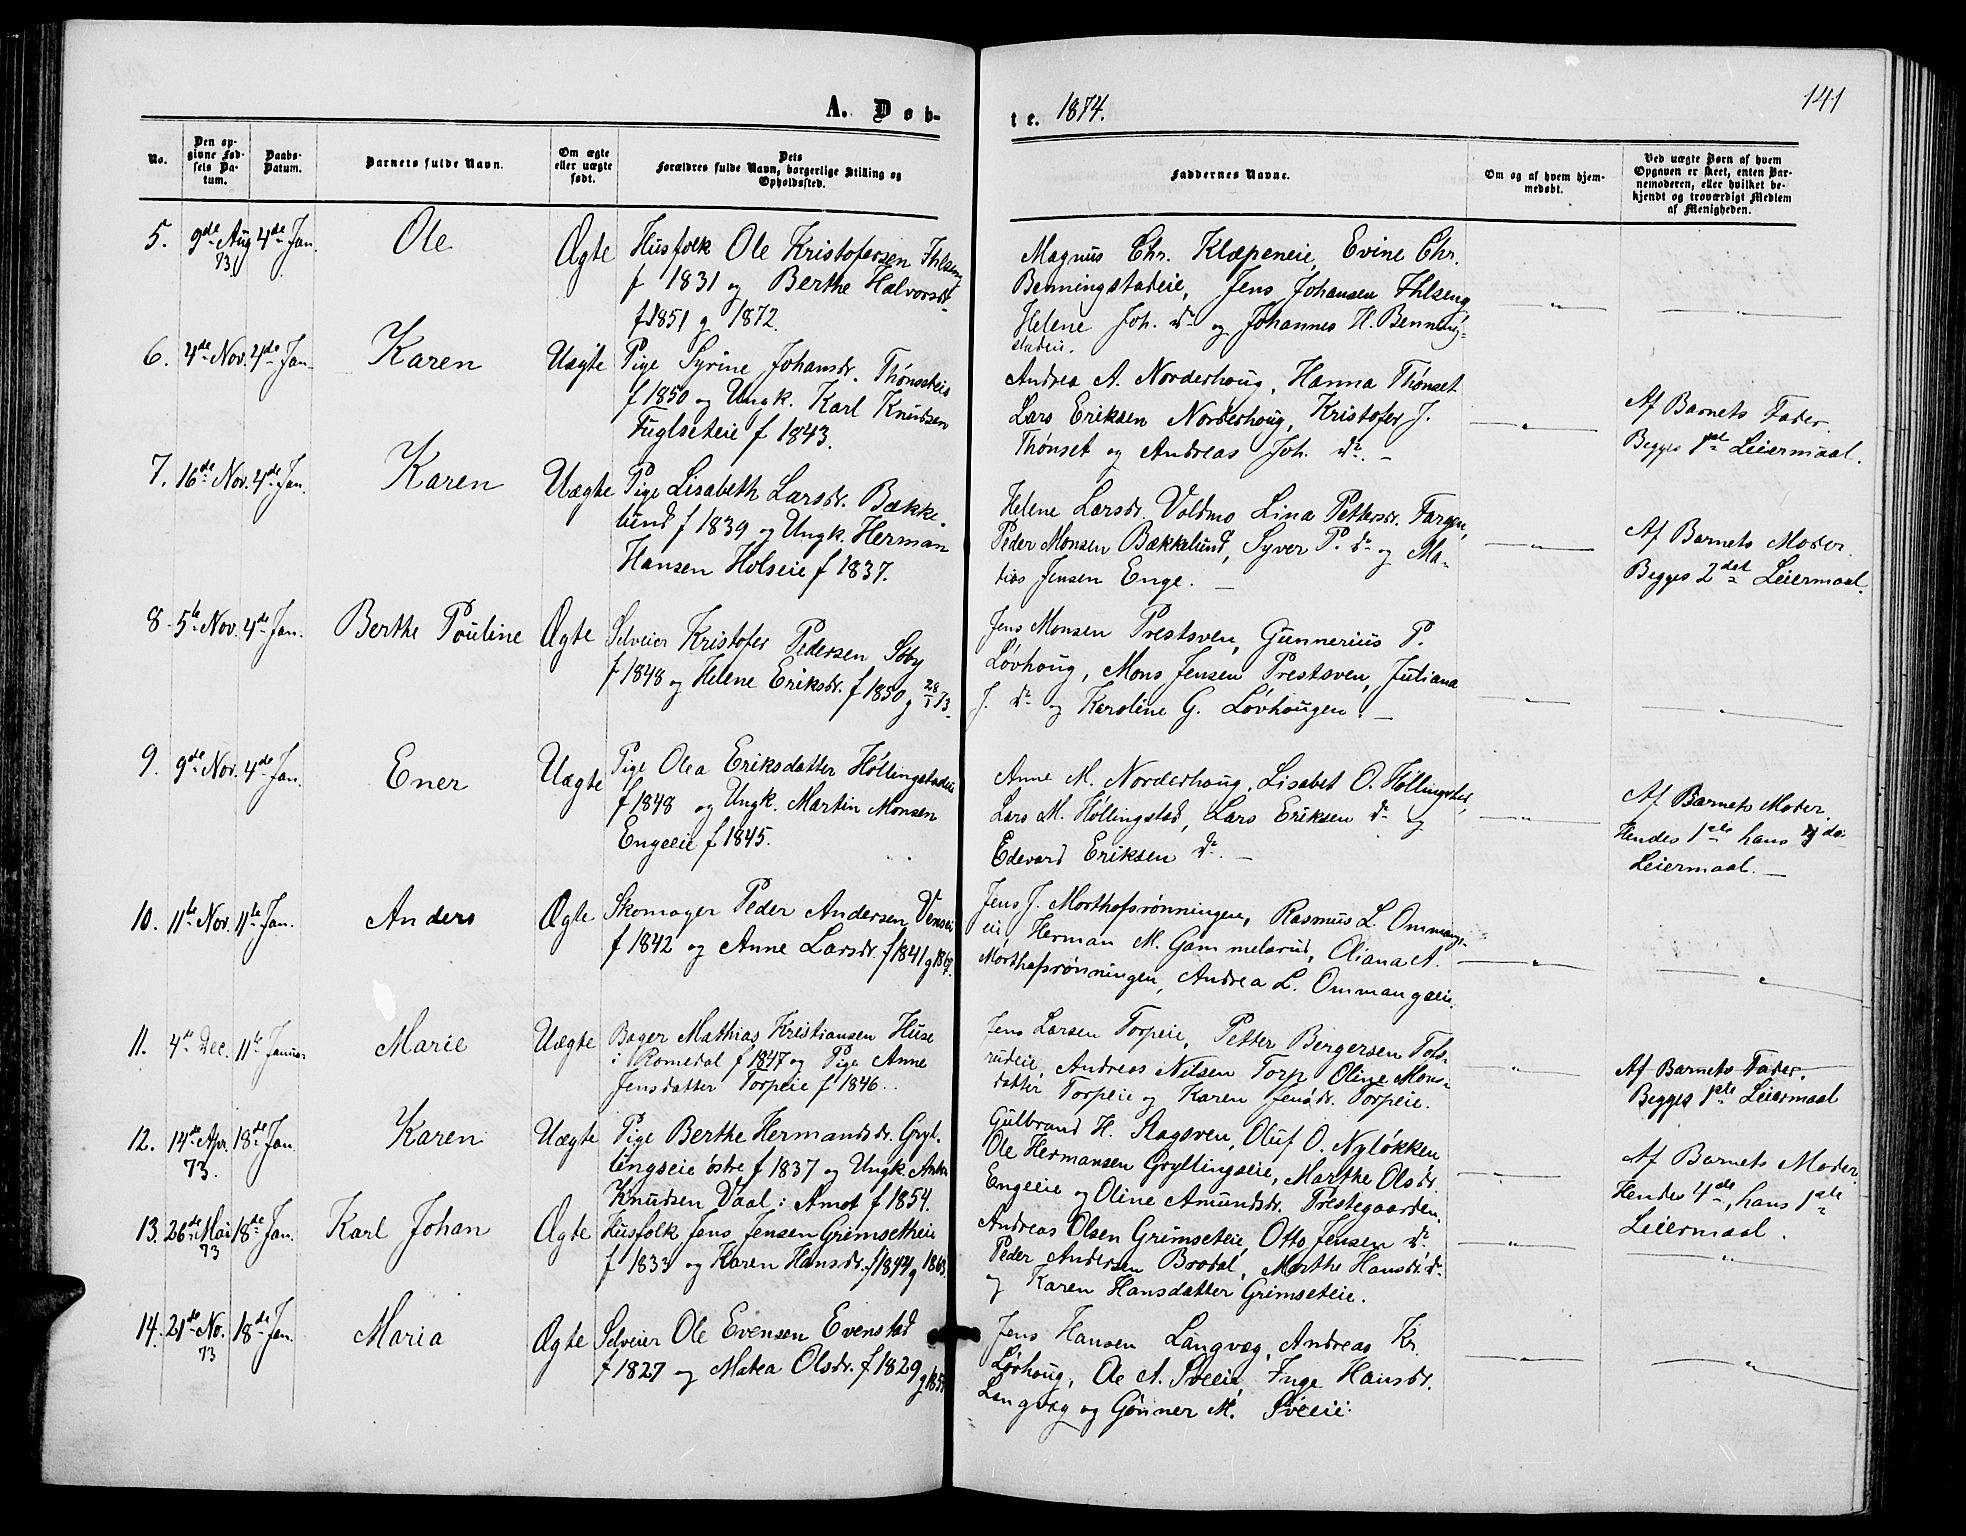 141
A. Døb-
te. 1874.
No.
Den opgivne Fødsels Datum.
Daabs-Datum.
Barnets fulde Navn.
Om ægte eller uægte født.
Dets Forældres fulde Navn, borgerlige Stilling og Opholdssted.
Faddernes Navne.
Om og af hvem hjemmedøbt.
Ved uægte Børn af hvem Opgaven er skeet, enten Barnemoderen, eller hvilket bekjendt og troværdigt Medlem af Menigheden.
5. 9de Aug 73 4de Jan. Ole Ægte
Husfolk Ole Kristofersen Ihlseng
f 1831 og Berthe Halvorsdr.
f 1851 g 1872.
Magnus Chr. Klæpeneie, Evine Chr.
Benningstadeie, Jens Johansen Ihlseng
Helene Joh. do og Johannes H. Benning-
stadeie.
6. 4de Nov. 4de Jan. Karen Uægte
Pige Syrine Johansdr. Thønseteie
f 1850 og Ungk. Karl Knudsen
Fuglseteie f 1843.
Andrea A. Norderhoug, Hanna Thønset
Lars Eriksen Norderhoug, Kristofer J.
Thønset og Andreas Joh. do. -
Af Barnets Fader.
Begges 1ste Leiermaal.
7. 16de Nov. 4de Jan. Karen Uægte
Pige Lisabeth Larsdr. Bække-
lund f 1839 og Ungk. Herman
Hansen Holseie f 1837.
Helene Larsdr. Voldmo Lina Pettersdr. Fargen,
Peder Monsen Bækkelund, Syver P. do og Ma-
tias Jensen Enge. -
Af Barnets Moder.
Begges 2det Leiermaal.
8. 5te Nov. 4de Jan. Berthe Pouline Ægte
Selveier Kristofer Pedersen Soby
f 1848 og Helene Eriksdr. f 1850 g 28/1 73.
Jens Monsen Prestsven, Gunnerius P.
Løvhoug, Mons Jensen Prestsven, Juliana
J. do og Karoline G. Løvhougen. -
9. 9de Nov. 4de Jan. Ener Uægte
Pige Olea Eriksdatter Høllingstadeie
f 1848 og Ungk. Martin Monsen
Engeeie f 1845.
Anne M. Norderhoug, Lisabet O. Høllingstad,
Lars M. Høllingstad, Lars Eriksen do og
Edevard Eriksen do. -
Af Barnets Moder.
Hendes 1ste hans
Leiermaal. -
10. 11te Nov. 11te Jan. Anders Ægte
Skomager Peder Andersen Venseie
f 1842 og Anne Larsdr. f 1841 g
Jens J. Morthofsrønningen, Rasmus L. Ommang-
eie, Herman M. Gammelsrud, Oliana A.
Morthofsrønningen, Andrea L. Ommangseie.
11. 4de Dec. 11te Januar Marie Uægte
Bager Mathias Kristiansen Huse
i Romedal f 1847 og Pige Anne
Jensdatter Torpeie f 1846.
Jens Larsen Torpeie, Petter Bergersen Tots-
rudeie, Andreas Nilsen Torp Oline Mons-
datter Torpeie og Karen Jensdr. Torpeie.
Af Barnets Fader.
Begges 1ste Leiermaal
12. 14de Apr. 73. 18de Jan Karen Uægte
Pige Berthe Hermandsdr. Gryl-
lingseie østre f 1837 og Ungk.
Knudsen Vaal i Amot f 1854.
Gulbrand H. Stagsven, Oluf O. Nyløkken
Ole Hermansen Gryllingseie, Marthe Olsdr.
Engeeie og Oline Amundsdr. Prestegaarden.
Af Barnets Moder.
Hendes 4de, hans 1ste
Leiermaal.
13. 26de Mai 73 18de Jan. Karl Johan Ægte
Husfolk Jens Jensen Grimsetheie
f 1833 og Karen Hansdr. f 1844 g
Andreas Olsen Grimseteie, Otto Jensen do.
Peder Andersen Brodal, Marthe Hansdr. do.
og Karen Hansdatter Grimseteie.
14. 21de No. 73 18de Jan. Maria Ægte
Selveier Ole Evensen Evenstad
f 1827 og Matea Olsdr. f 1829 g
Jens Hansen Langvæg, Andreas Kr.
Løvhoug, Ole A. Sveeie, Inge Hansdr.
Langvæg og Gunner M. Sveeie.